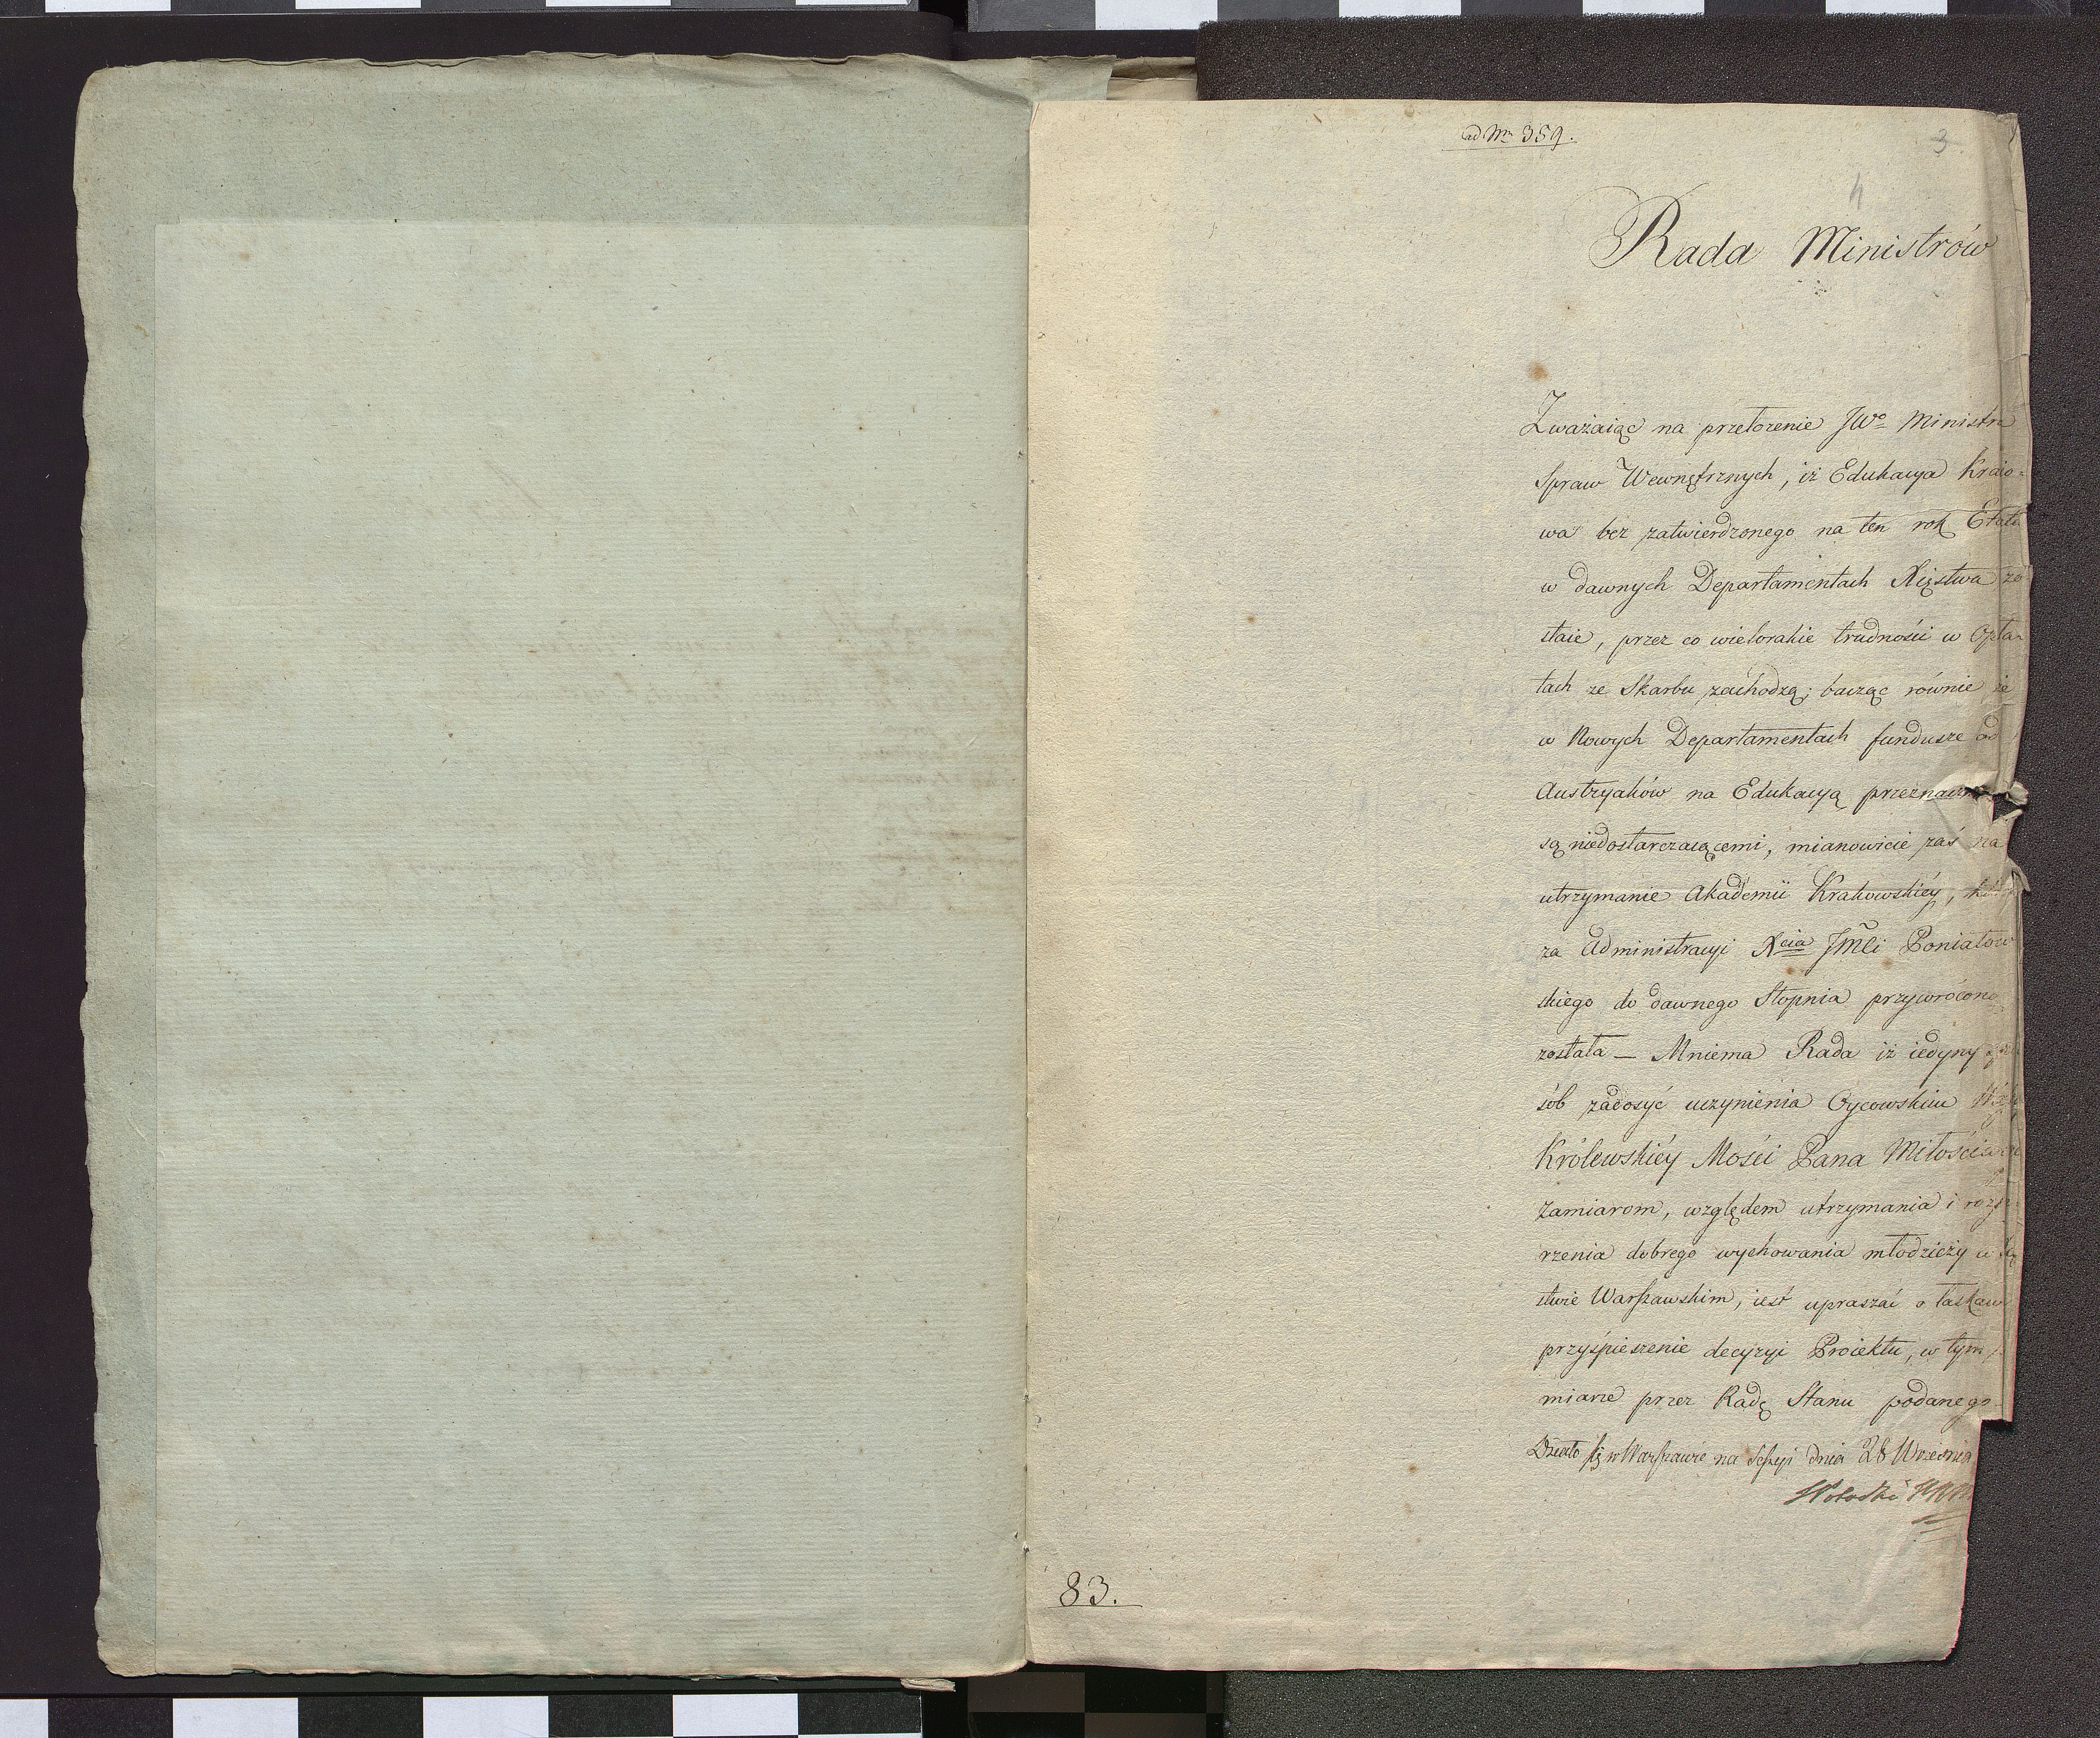 ad Nrm 359.
3
4
Rada Ministrów
Zważaiąc na przełożenie JWo Ministra
Spraw Wewnętrznych, iż Edukacya Kraio-
wa bez zatwierdzonego na ten rok Etatu
w dawnych Departamentach Xięstwa zo
staie, przez co wielorakie trudności w Opła-
tach ze Skarbu zachodzą; bacząc równie że
w Nowych Departamentach fundusze od
Austryaków na Edukacyą przeznaczo
są niedostarczaiącemi, mianowicie zaś na
utrzymanie Akademii Krakowskiéy,
za Administracyi Xcia JMci Poniatow
skiego do dawnego Stopnia przywrócona
została — Mniema Rada iż iedyny
sób zadosyć uczynienia Oycowskim
Królewskiéy Mości Pana Miłościw
zamiarom, względem utrzymania i rozsze
rzenia dobrego wychowania młodzieży w
stwie Warszawskim, iest upraszać o łaskaw
przyśpieszenie decyzyi Proiektu, w tym
miarze przez Radę Stanu podanego.
Działo się w Warszawie na Sessyi dnia 28 Września
83.